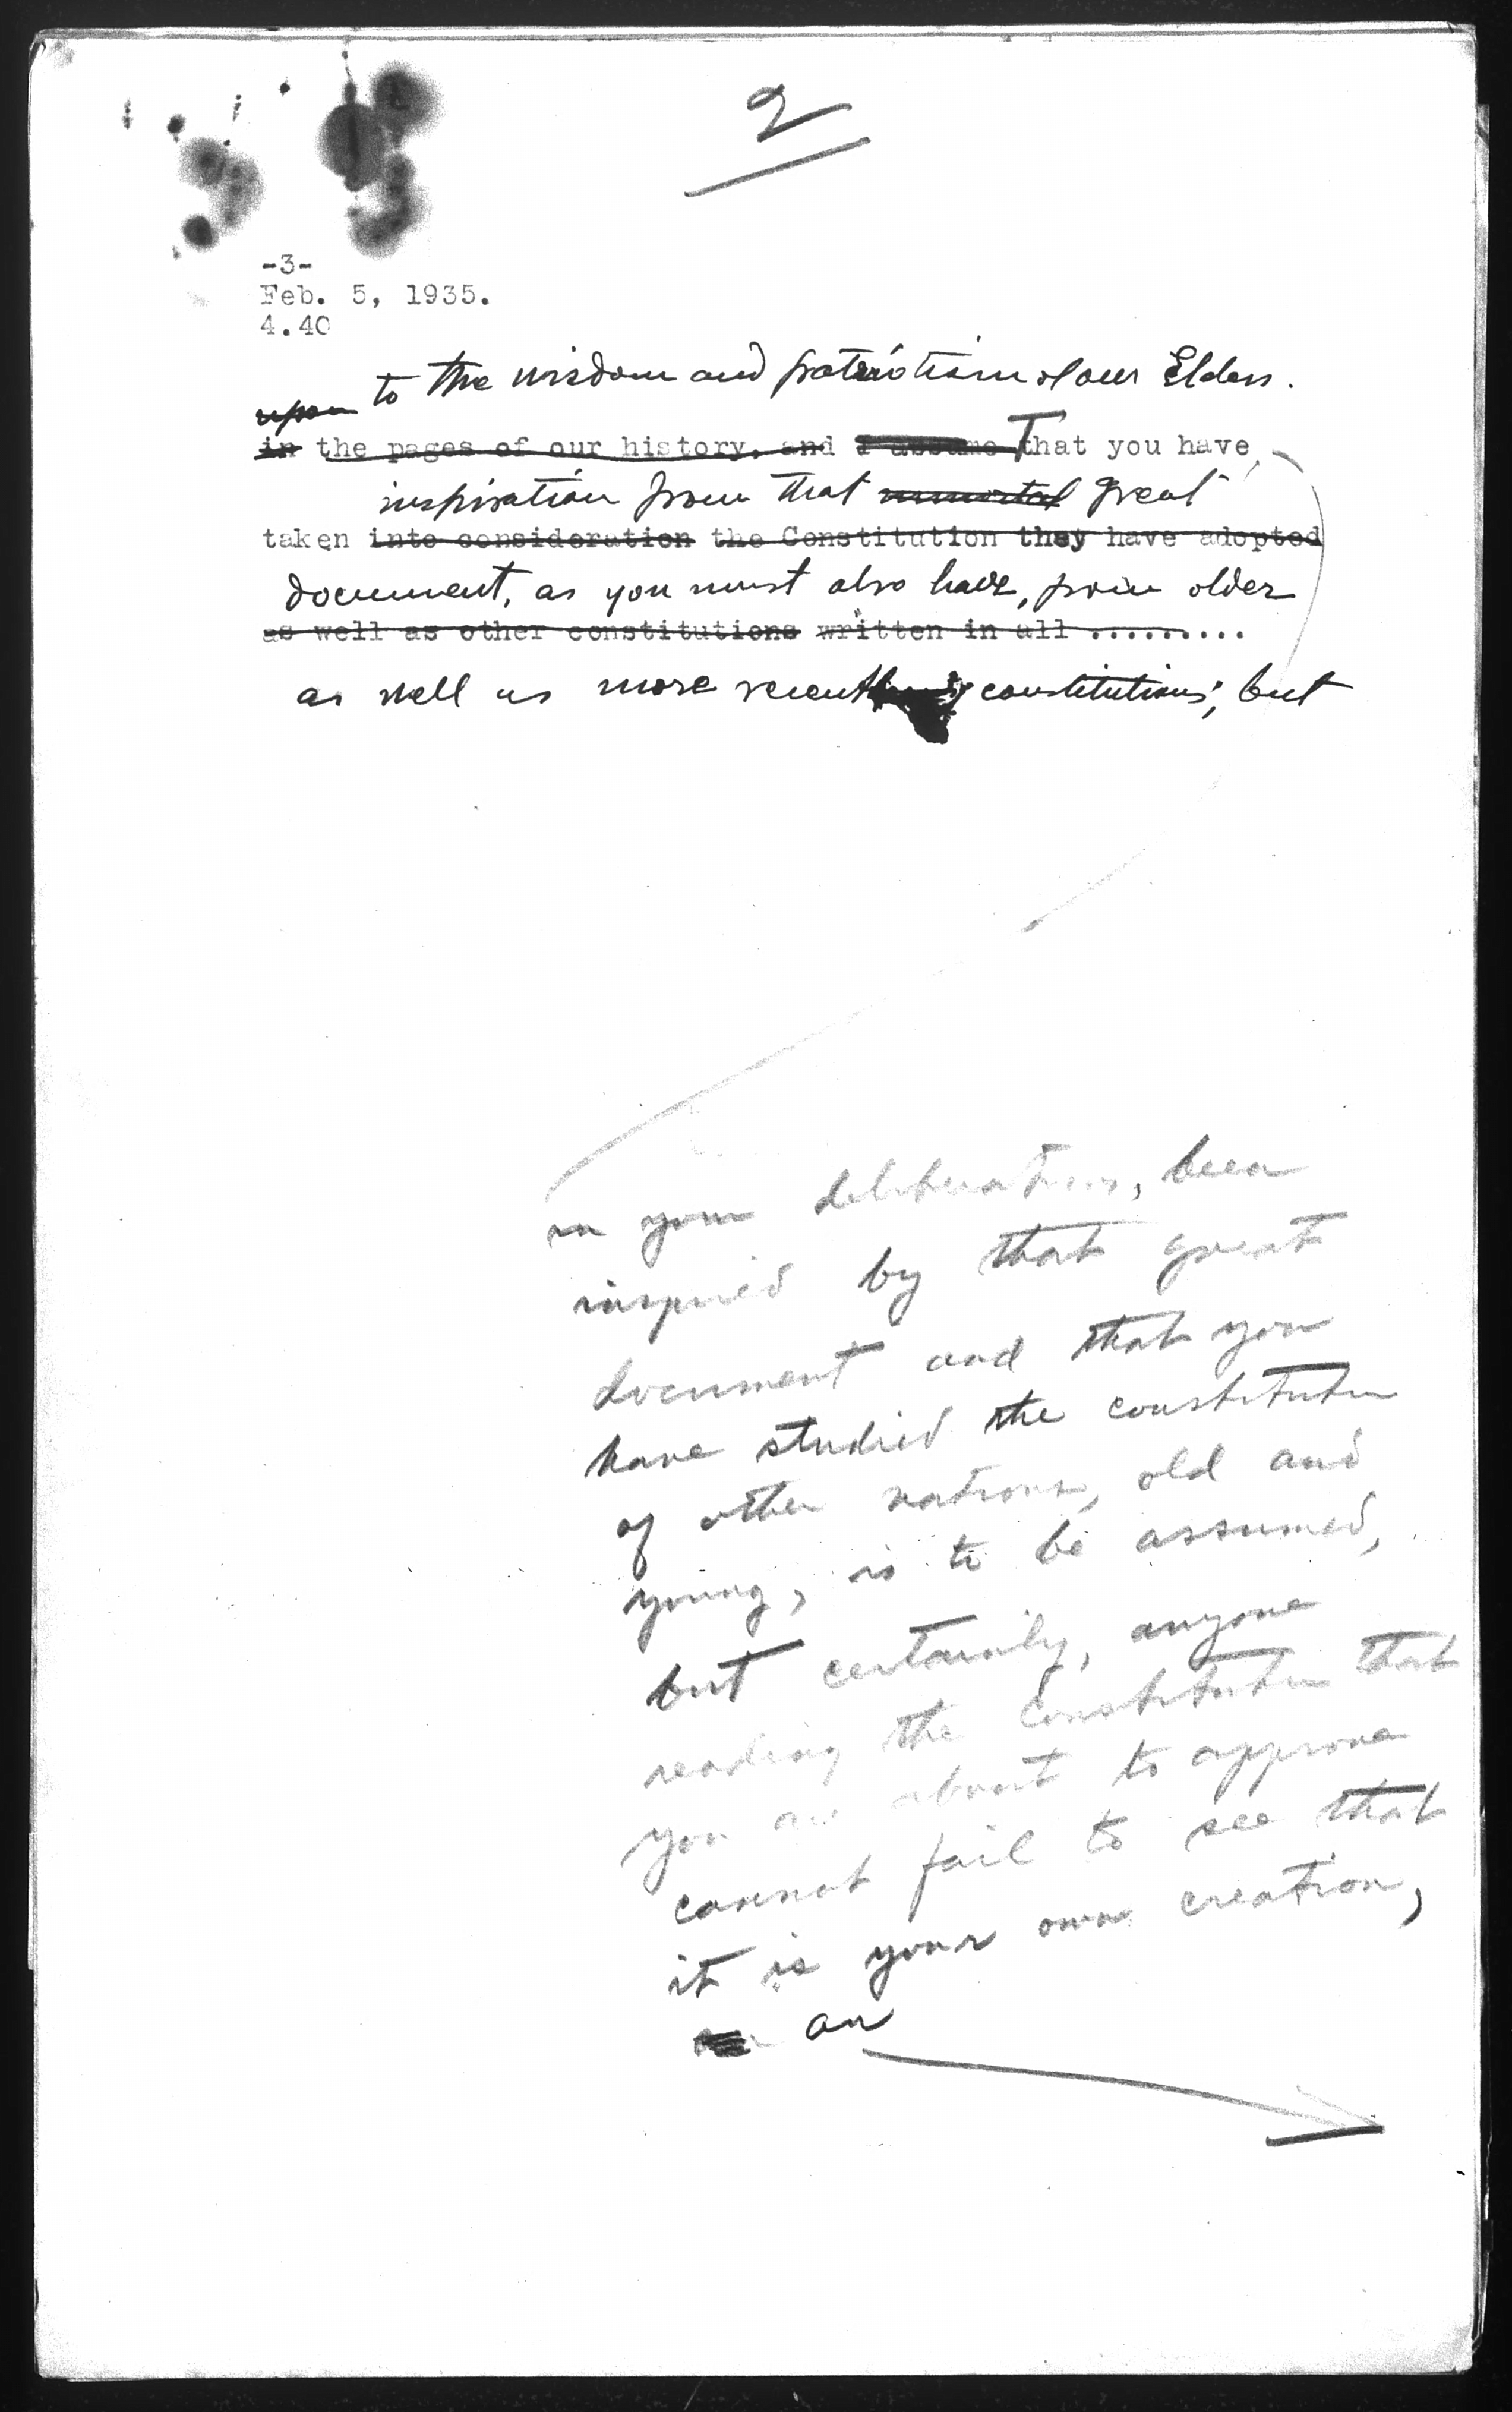 2
-3-
Feb. 5, 1935.
4.40
to the wisdom and patriotism of our Elders.
upon
in the pages of our history, and I assume That you have,
inspiration from that immortal great
taken into consideration the Constitution they have adopted
document, as you must also have, from older
as well as other constitutions written in all .........
as well as more recent constitutions; but
in your deliberations, been
inspired by that great
document and that you
have studied the constitution
of other nations, old and
young, is to be assumed,
but certainly, anyone
reading the Constitution that
you are about to approve
cannot fail to see that
it is your own creation,
an